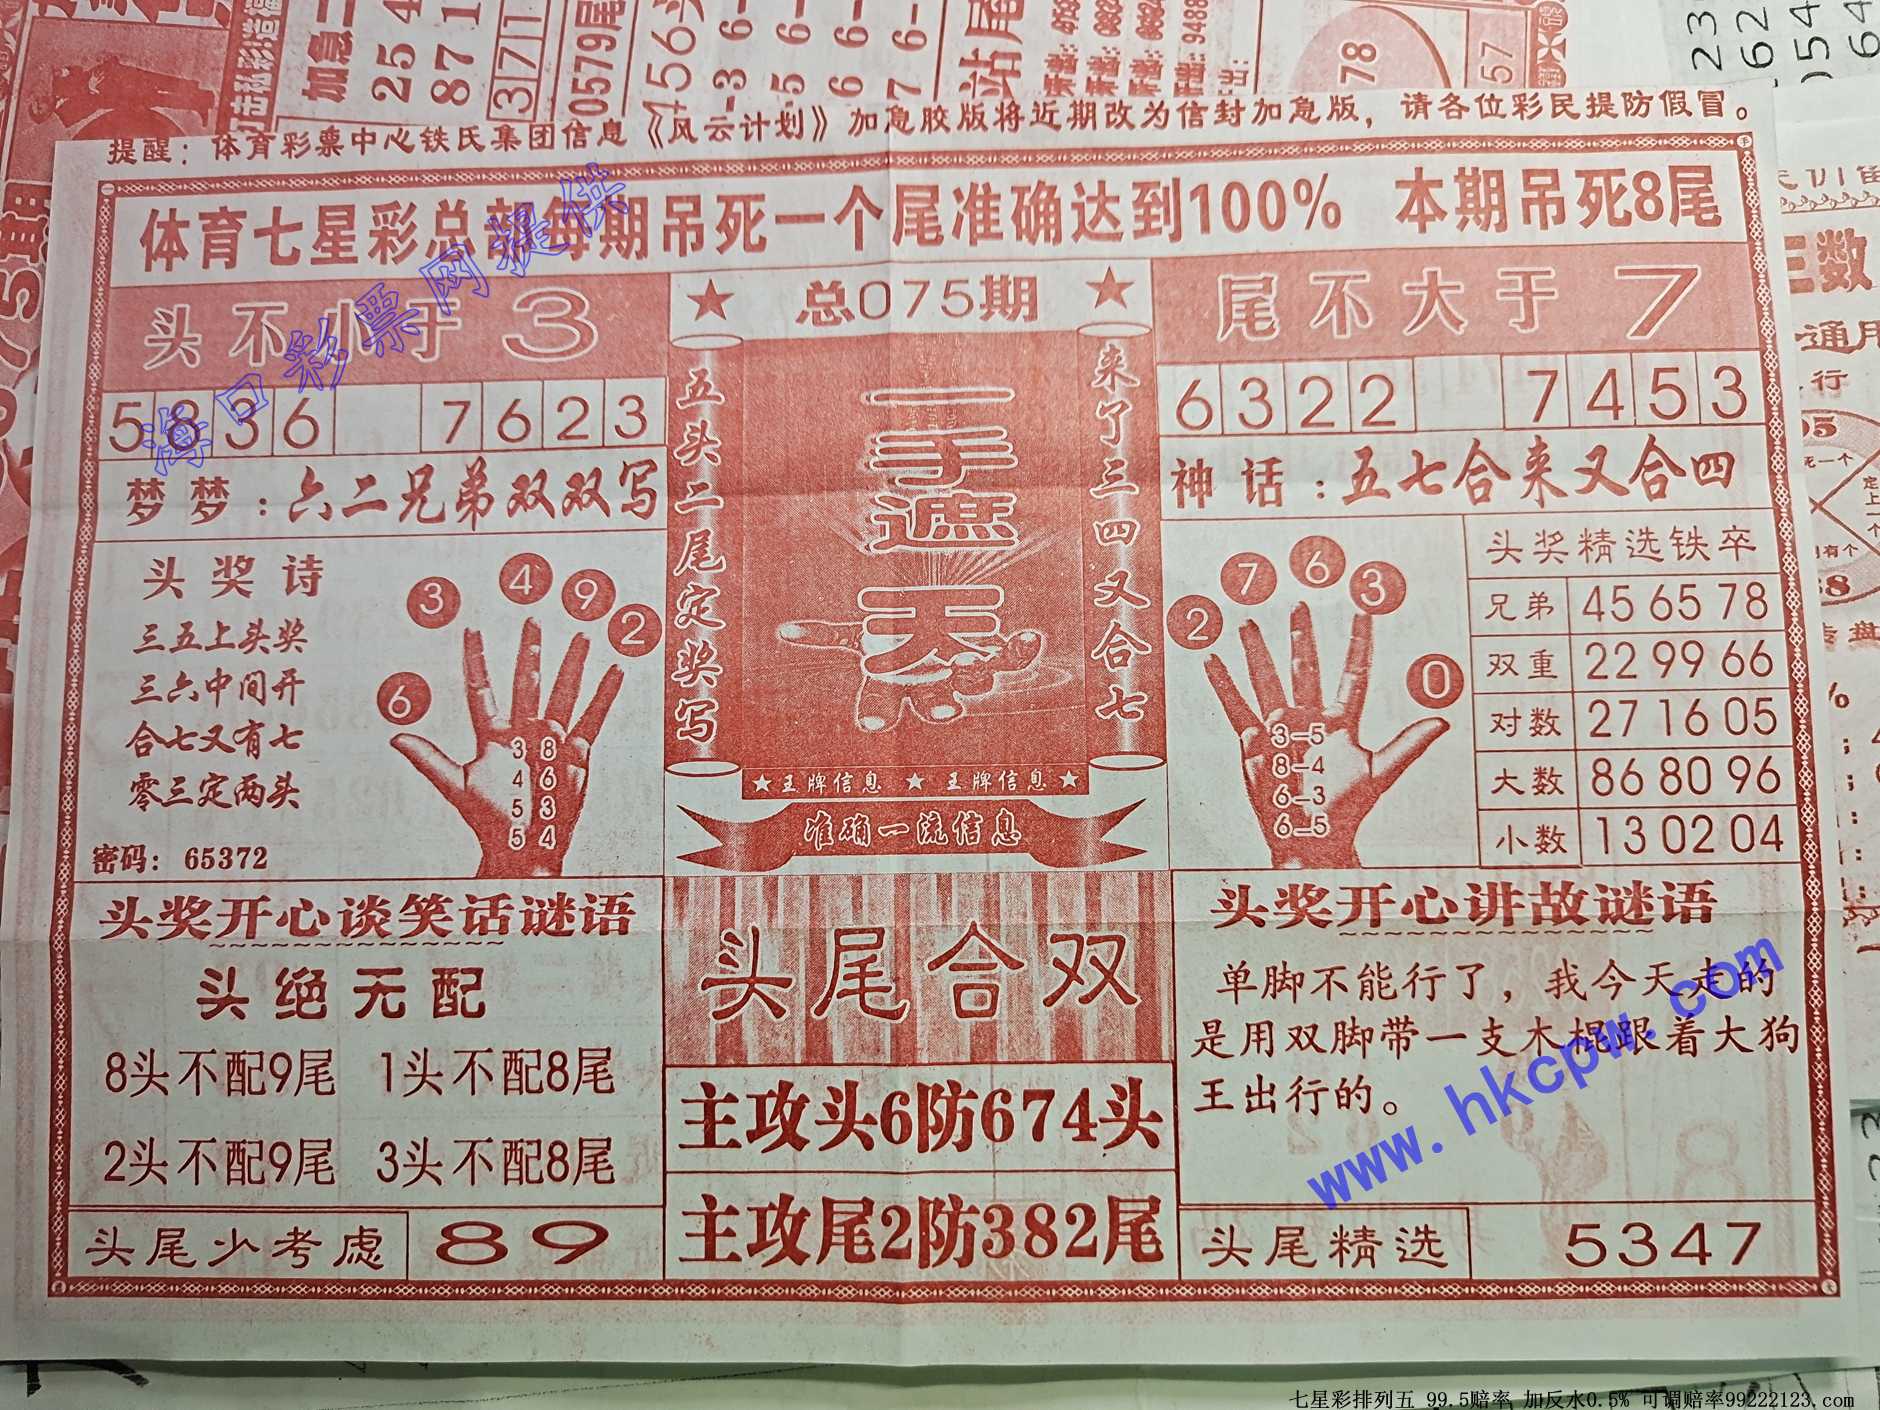 加急二
25 4
87 1
371
0579尾
456头
站尾
78
57
提醒：体育彩票中心铁氏集团信息《风云计划》加急胶版将近期改为信封加急版，请各位彩民提防假冒。
体育七星彩总部每期吊死一个尾准确达到100% 本期吊死8尾
头不小于3
总075期
尾不大于7
5836 7623
6322 7453
梦梦：六二兄弟双双写
神话：五七合来又合四
五头二尾定奖写
一手遮天
来了三四又合七
头奖诗
三五上头奖
三六中间开
合七又有七
零三定两头
密码：65372
6 3 4 9 2
3 8
4 6
5 3
5 4
2 7 6 3 0
3-5
8-4
6-3
6-5
头奖精选铁卒
兄弟 45 65 78
双重 22 99 66
对数 27 16 05
大数 86 80 96
小数 13 02 04
★王牌信息 ★ 王牌信息★
准确一流信息
头奖开心谈笑话谜语
头绝无配
8头不配9尾 1头不配8尾
2头不配9尾 3头不配8尾
头尾少考虑 89
头尾合双
主攻头6防674头
主攻尾2防382尾
头奖开心讲故谜语
单脚不能行了，我今天走的
是用双脚带一支木棍跟着大狗
王出行的。
头尾精选 5347
海口彩票网提供
www.hkcpw.com
七星彩排列五 99.5赔率 加反水0.5% 可调赔率99222123.com